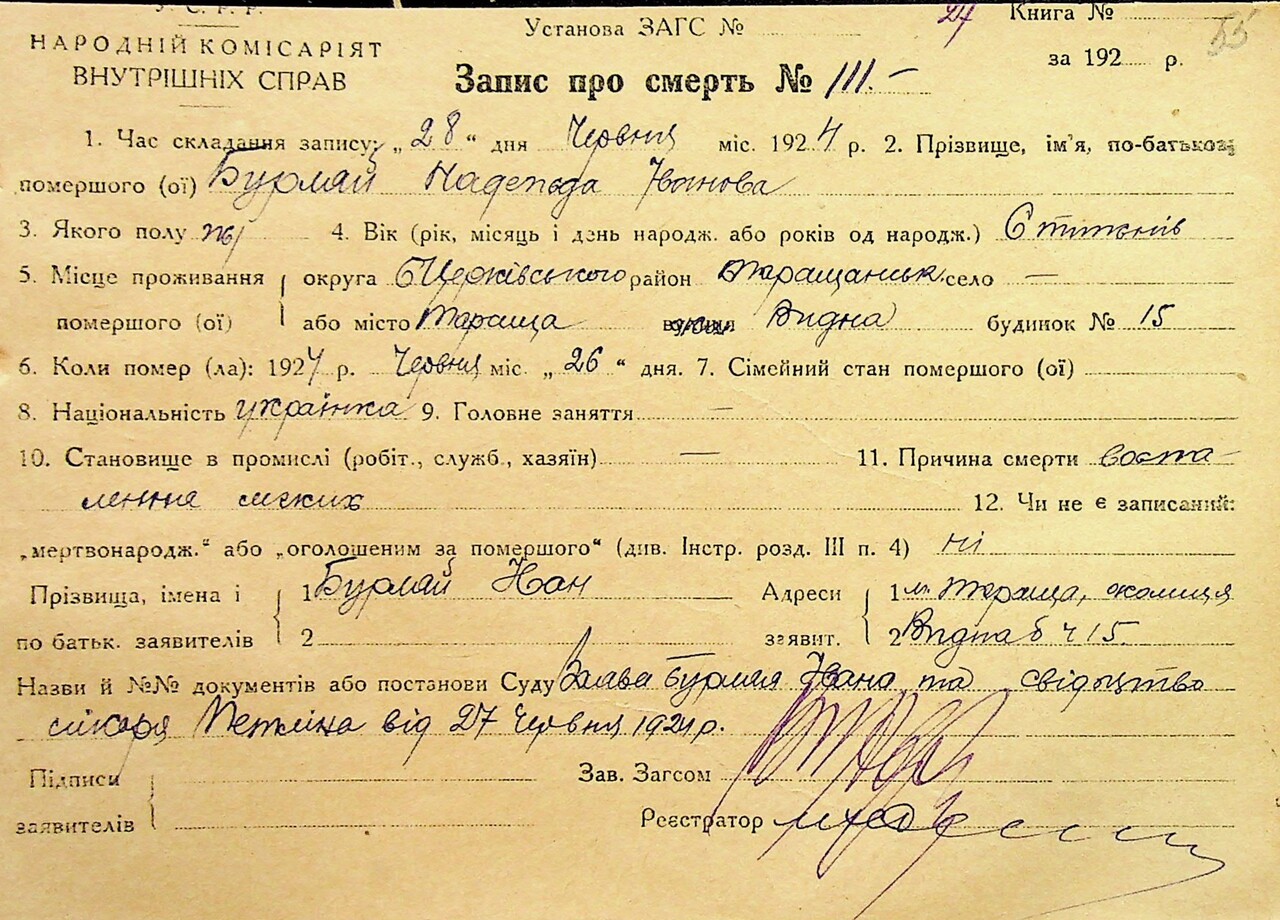 У. С. Р. Р.
НАРОДНІЙ КОМІСАРІЯТ
ВНУТРІШНІХ СПРАВ
Установа ЗАГС №
27 Книга №
за 192 р.
55
Запис про смерть № 111.-
1. Час складання запису: „28“ дня Червня міс. 1924 р. 2. Прізвище, ім'я, по-батькові
помершого (ої) Бурлай Надежда Іванова
3. Якого полу ж 4. Вік (рік, місяць і день народж. або років од народж.) 6 тижнів
5. Місце проживання округа БЦерківського район Таращанськ. село —
помершого (ої) або місто Тараща Видна будинок № 15
6. Коли помер (ла): 1924 р. Червня міс. „26“ дня. 7. Сімейний стан помершого (ої)
8. Національність українка 9. Головне заняття —
10. Становище в промислі (робіт., служб., хазяїн) — 11. Причина смерти воспа-
лення легких 12. Чи не є записаний:
„мертвонародж.“ або „оголошеним за помершого“ (див. Інстр. розд. III п. 4) ні
Прізвища, імена і 1 Бурлай Іван Адреси 1 м. Тараща, околиця
по батьк. заявителів 2 заявит. 2 Видна б ч 15.
Назви й №№ документів або постанови Суду Заява Бурлая Івана та свідоцтво
лікаря від 27 Червня 1924 р.
Підписи Зав. Загсом
заявителів Реєстратор